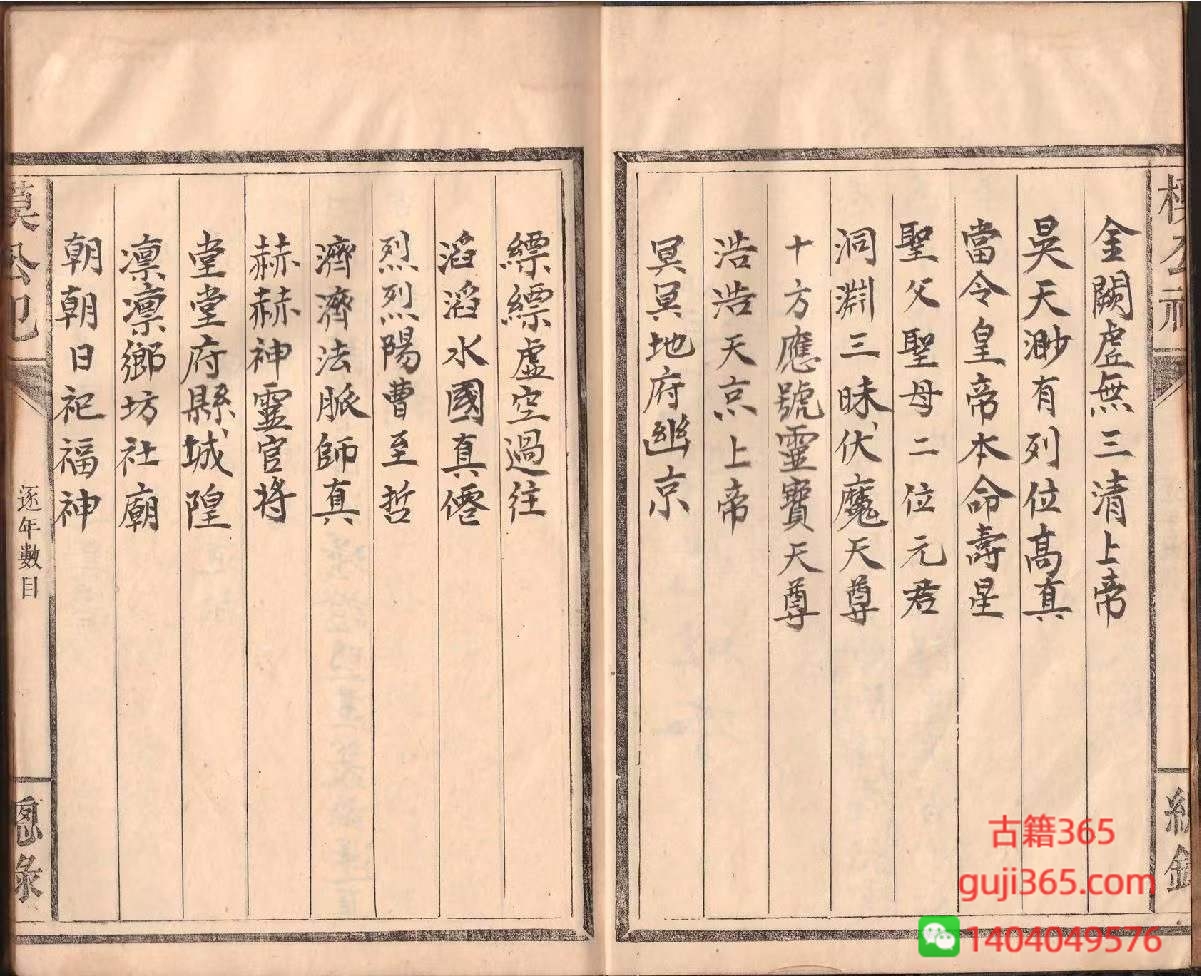 金闕虛無三清上帝
昊天渺有列位高真
當今皇帝本命壽星
聖父聖母二位元君
洞淵三昧伏魔天尊
十方應號靈寶天尊
浩浩天京上帝
冥冥地府幽京
縹縹虛空過往
滔滔水國真僊
烈烈陽曹至哲
濟濟法脈師真
赫赫神靈官将
堂堂府縣城隍
凛凛鄉坊社廟
朝朝日祀福神
逐年數目
總錄
古籍365
guji365.com
1404049576